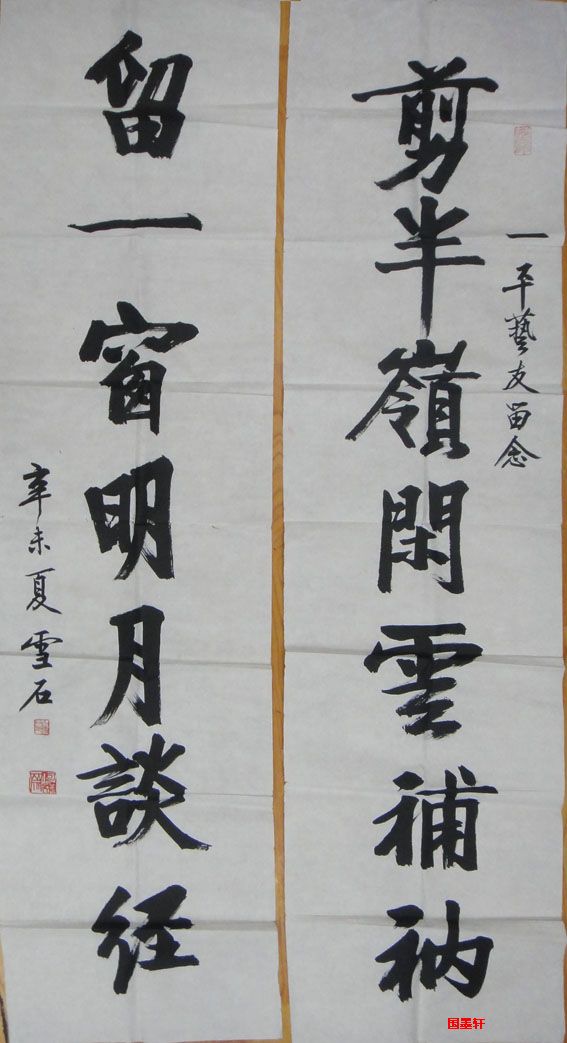 剪半嶺閑雲補衲
一平藝友留念
留一窗明月談经
辛未夏雪石
国墨轩